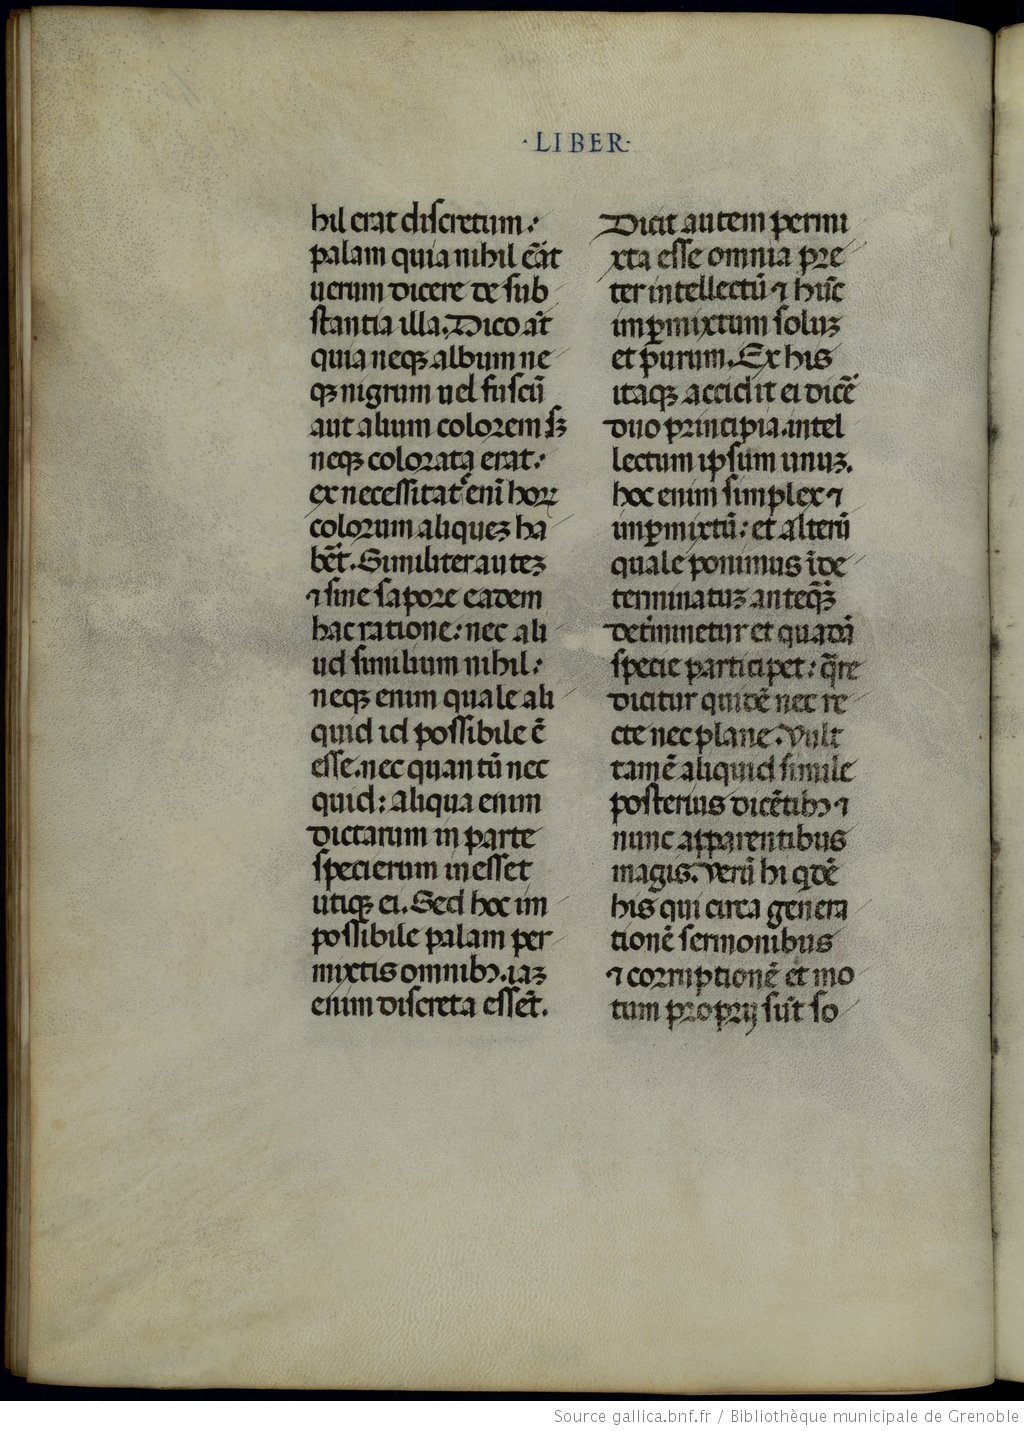 ·LIBER·
hil erat discretum:
palam quia nihil e᷒at
uerum dicere de sub
stantia illa. Dico aũt
quia neqꝫ album ne
qꝫ nigrum uel fuscũ
aut alium colorem sꝫ
neqꝫ colorata erat:
ex necessitate enĩ hoꝝ
colorum aliqueꝫ ha
bẽt. Similiter auteꝫ
⁊ sine sapore eadem
hac ratione: nec ali
ud similium nihil:
neqꝫ enim quale ali
quid id possibile ẽ
esse. nec quantũ nec
quid: aliqua enim
dictarum in parte
specierum inesset
utiqꝫ ei. Sed hoc im
possibile palam per
mixtis omnibꝰ. iaꝫ
enim discreta essẽt.
Dicit autem permi
xta esse omnia pre
ter intellectũ ⁊ hũc
imꝑmixtum soluꝫ
et purum. Ex his
itaqꝫ accidit ei dicẽ
duo principia. intel
lectum ipsum unuꝫ.
hoc enim simplex ⁊
imꝑmixtũ: et alterũ
quale ponimus ĩde
terminatuꝫ anteqꝫ̃
det̃minetur et quadã
specie participet: q̃re
dicitur quidẽ nec re
cte nec plane. Vult
tamẽ aliquid simile
posterius dicẽtibꝰ ⁊
nunc apparentibus
magis. Verũ hi qdẽ
his qui circa genera
tionẽ sermonibus
⁊ corruptionẽ et mo
tum proprij sũt so
www
Source gallica.bnf.fr / Bibliothèque municipale de Grenoble